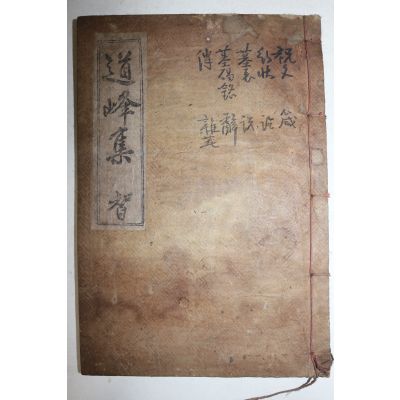 祝文 箴
行狀 論
墓表 說
墓碣銘 辭
傳 雜著
道峰集 智